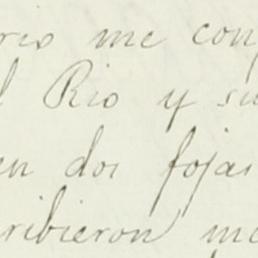 rio me con
l Rio y su
en dos fojas
ribieron me